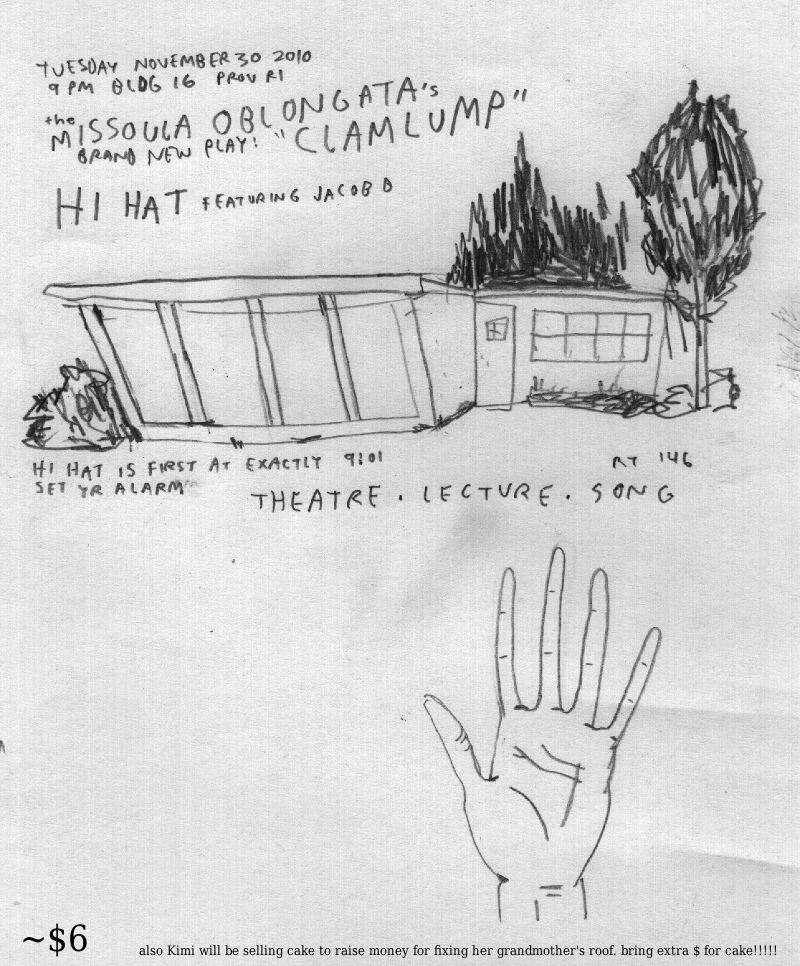 TUESDAY NOVEMBER 30 2010
9 PM BLDG 16 PROV RI
the
MISSOULA OBLONGATA'S
BRAND NEW PLAY: "CLAMLUMP"
HI HAT FEATURING JACOB B
HI HAT IS FIRST AT EXACTLY 9:01
SET YR ALARM
RT 146
THEATRE . LECTURE . SONG
~$6
also Kimi will be selling cake to raise money for fixing her grandmother's roof. bring extra $ for cake!!!!!